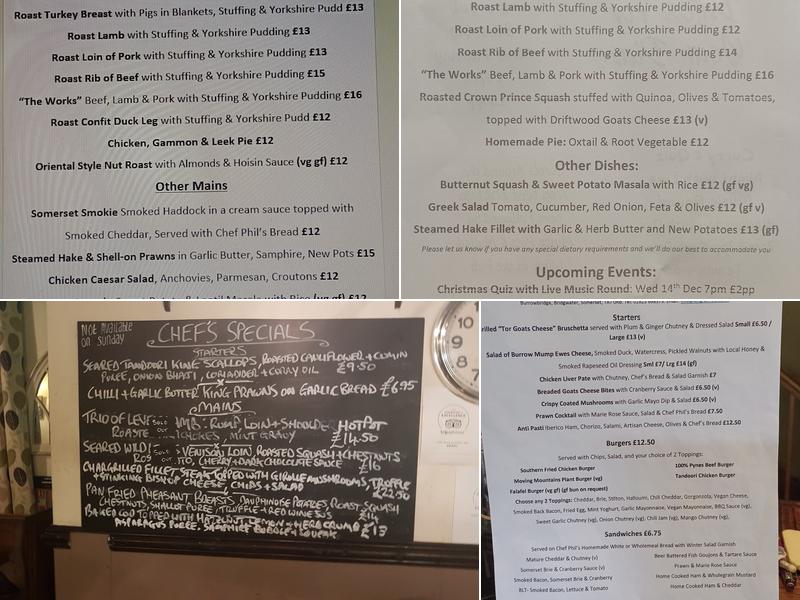 Roast Turkey Breast with Pigs in Blankets, Stuffing & Yorkshire Pudd £13
Roast Lamb with Stuffing & Yorkshire Pudding £13
Roast Loin of Pork with Stuffing & Yorkshire Pudding £13
Roast Rib of Beef with Stuffing & Yorkshire Pudding £15
“The Works” Beef, Lamb & Pork with Stuffing & Yorkshire Pudding £16
Roast Confit Duck Leg with Stuffing & Yorkshire Pudd £12
Chicken, Gammon & Leek Pie £12
Oriental Style Nut Roast with Almonds & Hoisin Sauce (vg gf) £12
Other Mains
Somerset Smokie Smoked Haddock in a cream sauce topped with
Smoked Cheddar, Served with Chef Phil’s Bread £12
Steamed Hake & Shell-on Prawns in Garlic Butter, Samphire, New Pots £15
Chicken Caesar Salad, Anchovies, Parmesan, Croutons £12
Roast Lamb with Stuffing & Yorkshire Pudding £12
Roast Loin of Pork with Stuffing & Yorkshire Pudding £12
Roast Rib of Beef with Stuffing & Yorkshire Pudding £14
“The Works” Beef, Lamb & Pork with Stuffing & Yorkshire Pudding £16
Roasted Crown Prince Squash stuffed with Quinoa, Olives & Tomatoes,
topped with Driftwood Goats Cheese £13 (v)
Homemade Pie: Oxtail & Root Vegetable £12
Other Dishes:
Butternut Squash & Sweet Potato Masala with Rice £12 (gf vg)
Greek Salad Tomato, Cucumber, Red Onion, Feta & Olives £12 (gf v)
Steamed Hake Fillet with Garlic & Herb Butter and New Potatoes £13 (gf)
Please let us know if you have any special dietary requirements and we’ll do our best to accommodate you
Upcoming Events:
Christmas Quiz with Live Music Round: Wed 14th Dec 7pm £2pp
Not Available on Sunday
CHEF'S SPECIALS
STARTERS
SEARED TANDOORI KING SCALLOPS, ROASTED CAULIFLOWER + CUMIN
PUREE, ONION BHAJI, CORIANDER + CURRY OIL £9.50
CHILLI + GARLIC BUTTER KING PRAWNS ON GARLIC BREAD £6.95
MAINS
TRIO OF RUMP, LOIN + SHOULDER HOTPOT
MINT GRAVY £14.50
SEARED WILD VENISON LOIN, ROASTED SQUASH + CHESTNUTS
CHERRY + DARK CHOCOLATE SAUCE £16
CHARGRILLED FILLET STEAK TOPPED WITH GIROLLE MUSHROOMS, TRUFFLE
+ STINKING BISHOP CHEESE SALAD £22.50
PAN FRIED PHEASANT BREASTS, DAUPHINOISE POTATOES, ROAST SQUASH
CHESTNUTS, SHALLOT PUREE, TRUFFLE + RED WINE JUS £14
BAKED COD TOPPED WITH HAZELNUT, LEMON + HERB CRUMB
ASPARAGUS PUREE, SAMPHIRE BUBBLE + SQUEAK £15
10
9
8
7
Burrowbridge, Bridgwater, Somerset,
Starters
"Tor Goats Cheese" Bruschetta served with Plum & Ginger Chutney & Dressed Salad Small £6.50 /
Large £13 (v)
Salad of Burrow Mump Ewes Cheese, Smoked Duck, Watercress, Pickled Walnuts with Local Honey &
Smoked Rapeseed Oil Dressing Sml £7/ Lrg £14 (gf)
Chicken Liver Pate with Chutney, Chef's Bread & Salad Garnish £7
Breaded Goats Cheese Bites with Cranberry Sauce & Salad £6.50 (v)
Crispy Coated Mushrooms with Garlic Mayo Dip & Salad £6.50 (v)
Prawn Cocktail with Marie Rose Sauce, Salad & Chef Phil's Bread £7.50
Anti Pasti Iberico Ham, Chorizo, Salami, Artisan Cheese, Olives & Chef's Bread £12.50
Burgers £12.50
Served with Chips, Salad, and your choice of 2 Toppings:
Southern Fried Chicken Burger
100% Pynes Beef Burger
Moving Mountains Plant Burger (vg)
Tandoori Chicken Burger
Falafel Burger (vg gf) (gf bun on request)
Choose any 2 Toppings: Cheddar, Brie, Stilton, Halloumi, Chilli Cheddar, Gorgonzola, Vegan Cheese,
Smoked Back Bacon, Fried Egg, Mint Yoghurt, Garlic Mayonnaise, Vegan Mayonnaise, BBQ Sauce (vg),
Sweet Garlic Chutney (vg), Onion Chutney (vg), Chilli Jam (vg), Mango Chutney (vg),
Sandwiches £6.75
Served on Chef Phil's Homemade White or Wholemeal Bread with Winter Salad Garnish
Mature Cheddar & Chutney (v)
Beer Battered Fish Goujons & Tartare Sauce
Somerset Brie & Cranberry Sauce (v)
Prawn & Marie Rose Sauce
Smoked Bacon, Somerset Brie & Cranberry
Home Cooked Ham & Wholegrain Mustard
BLT- Smoked Bacon, Lettuce & Tomato
Home Cooked Ham & Cheddar